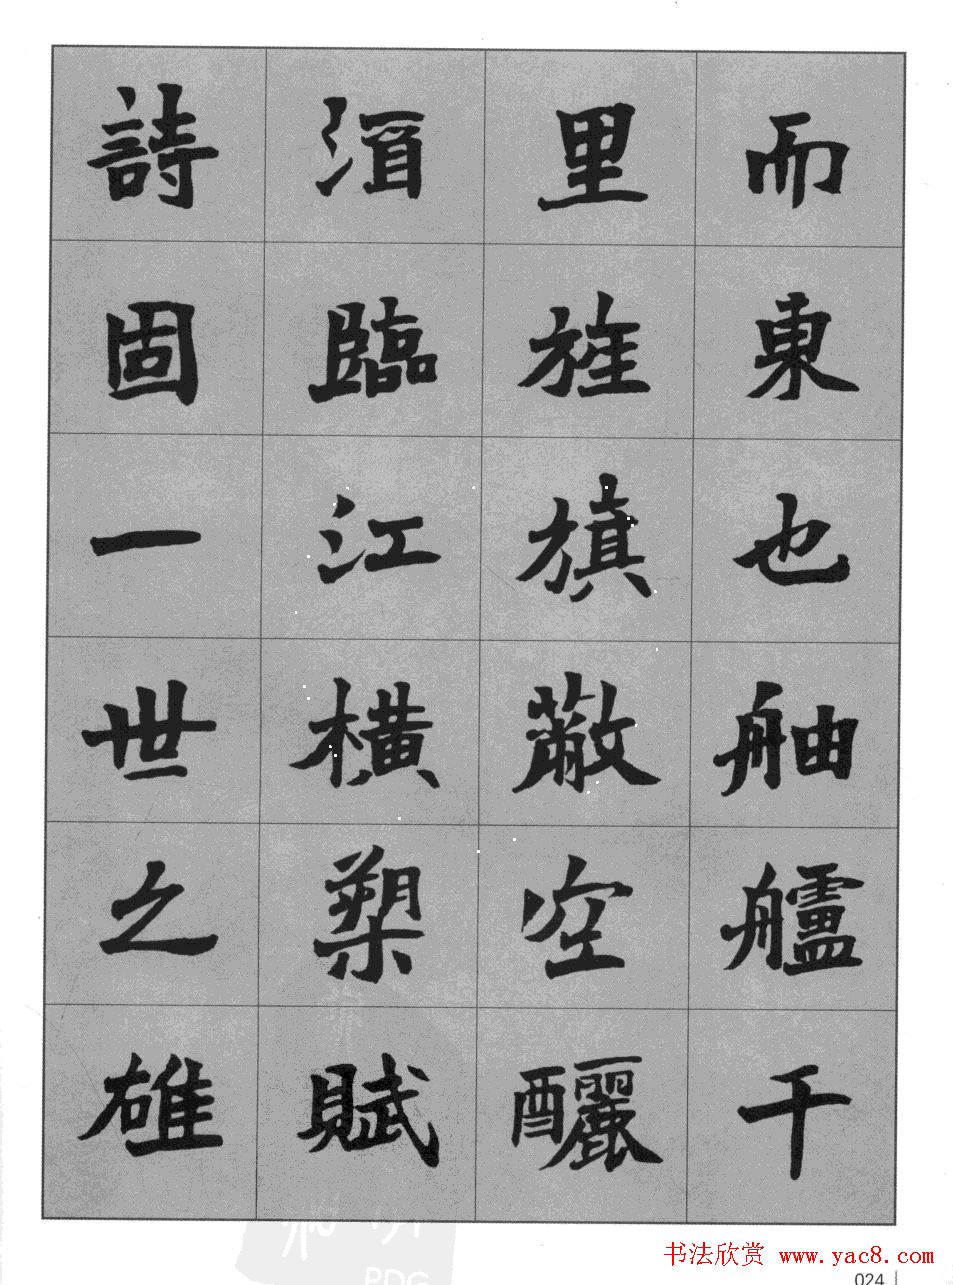 而東也舳艫千
里旌旗蔽空釃
酒臨江橫槊賦
詩固一世之雄
书法欣赏 www.yac8.com
024
PDG